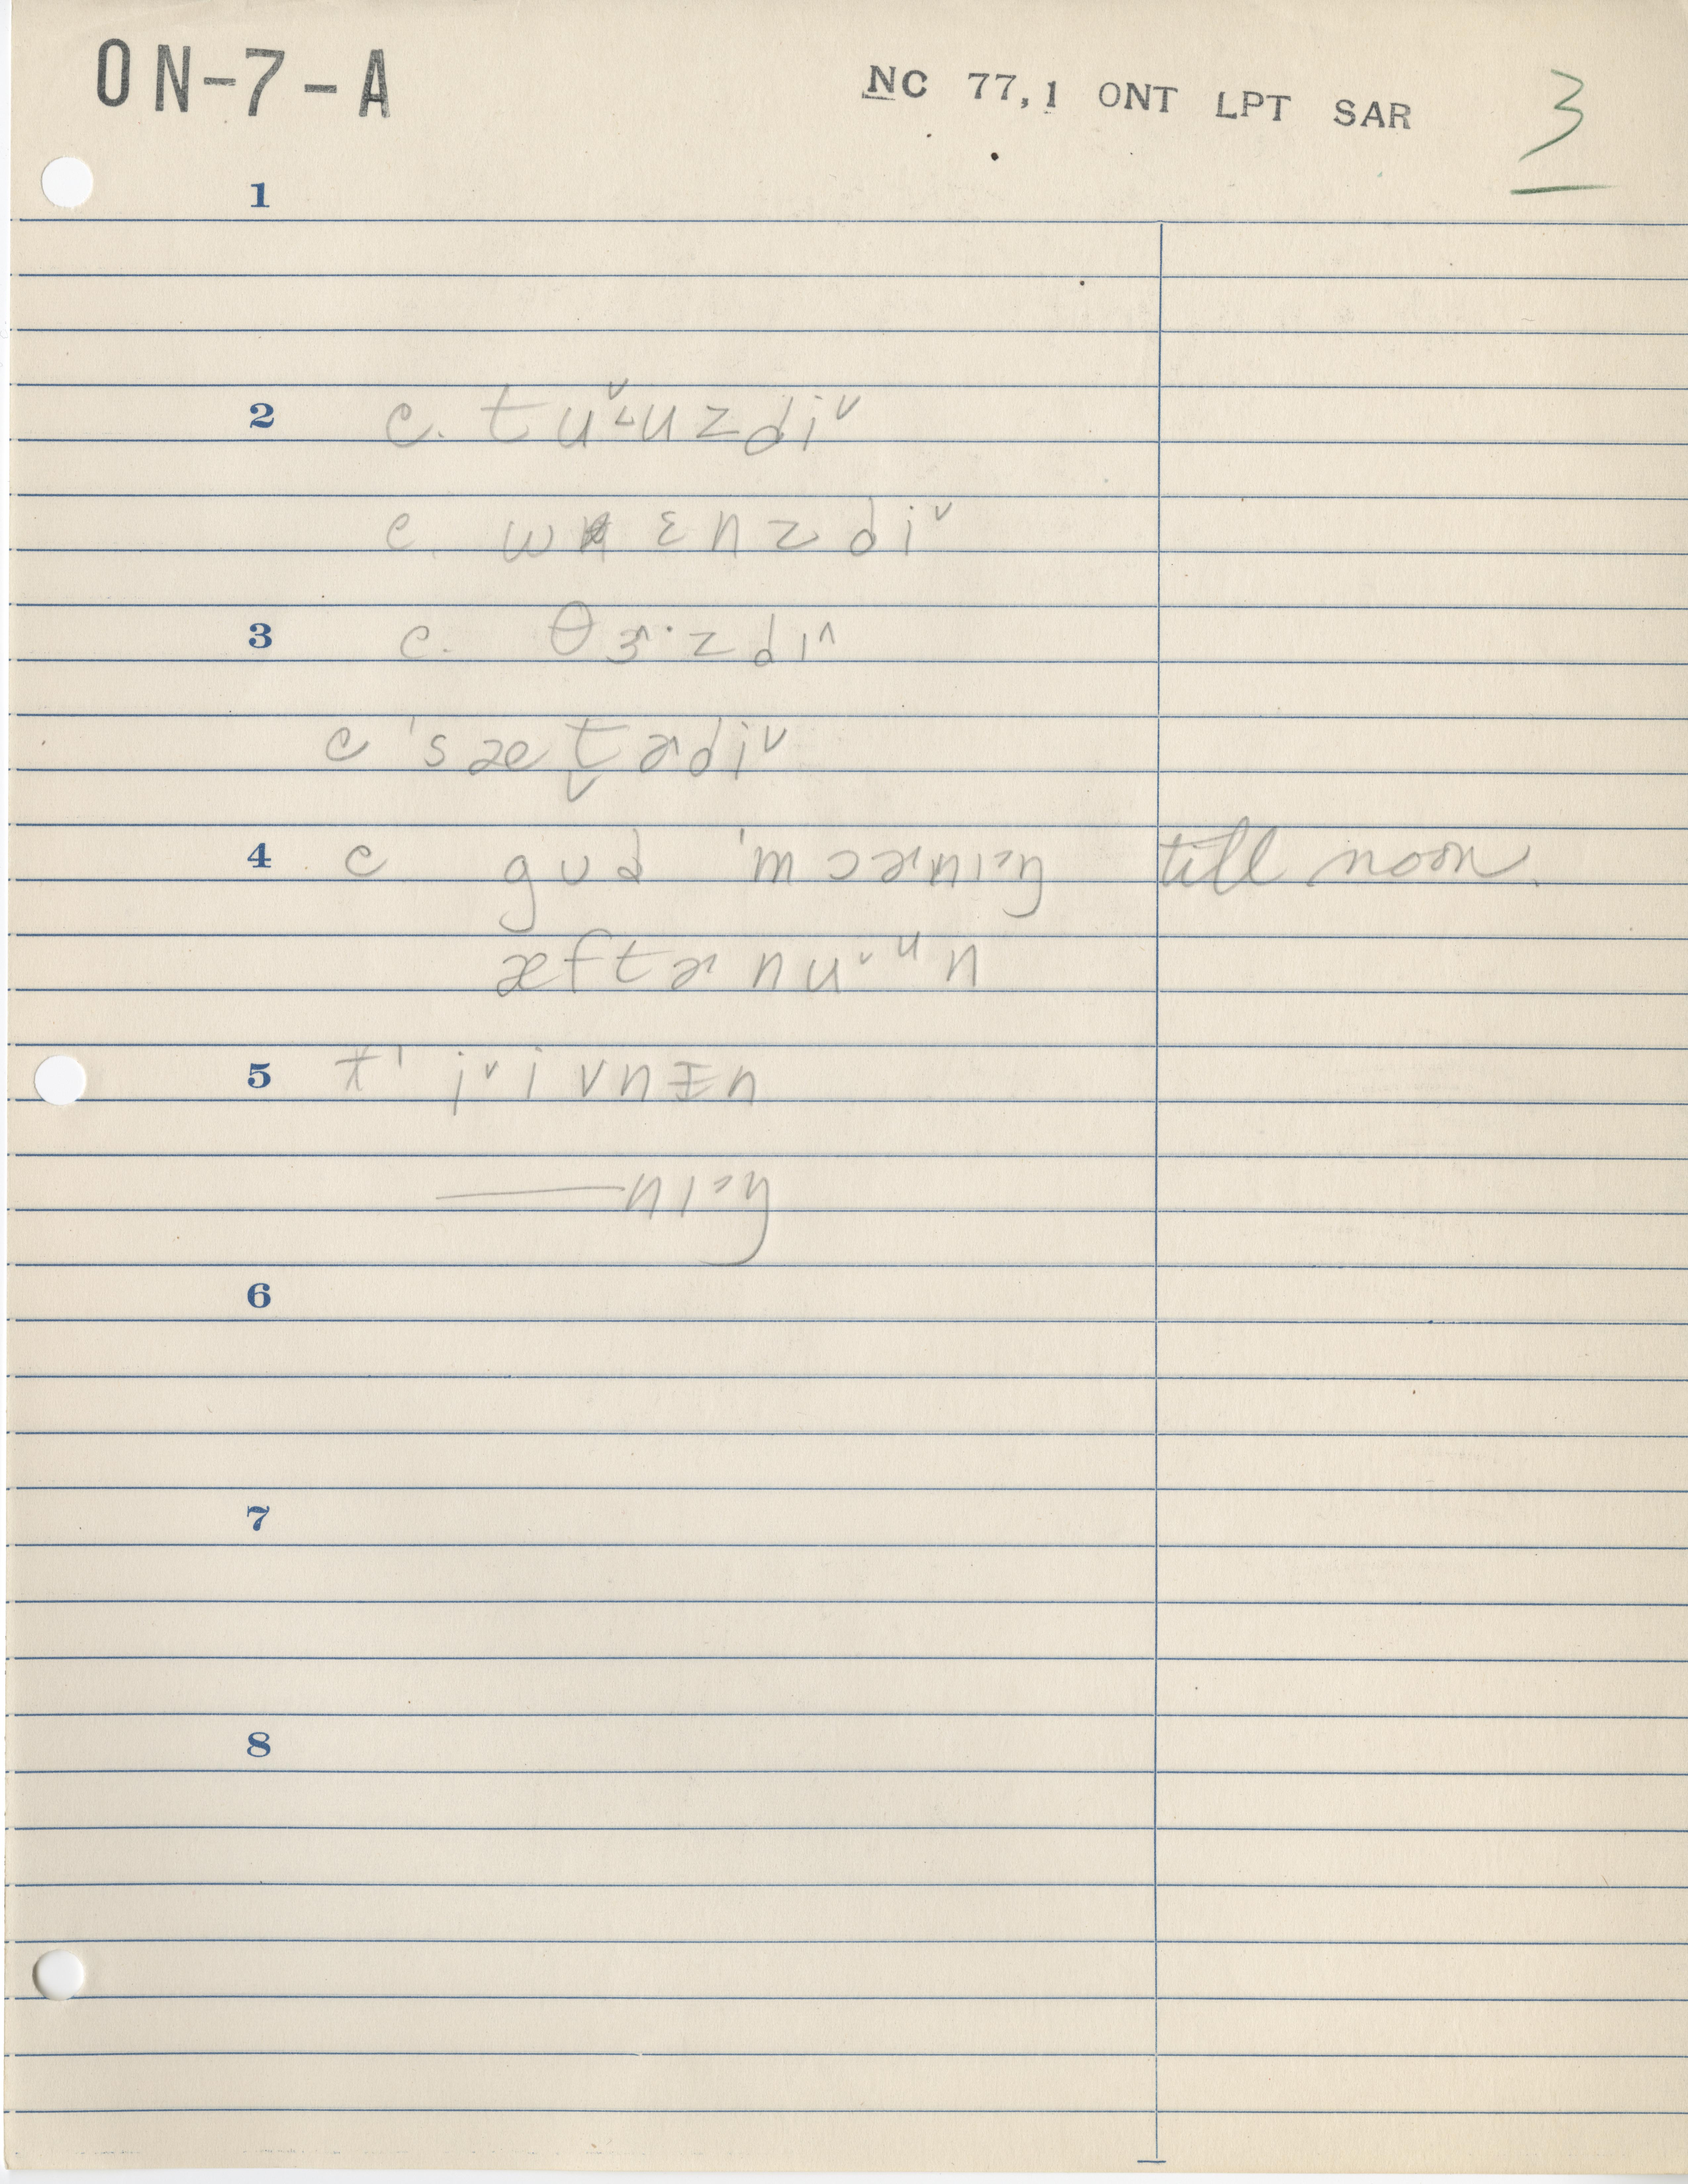 ON-7-A
NC 77,1 ONT LPT SAR 3
1
2 c. tu˅˂uzdi˅
c. wɛnzdi˅
3 c. θɝ·zdɪ˄
c 'sæt̬ɚdi˅
4 c gʊd 'mɔɚnɪ˃ŋ till noon.
æftɚnu˅ᵘn
5 i˅ivnɪn
——nɪ˃ŋ
6
7
8